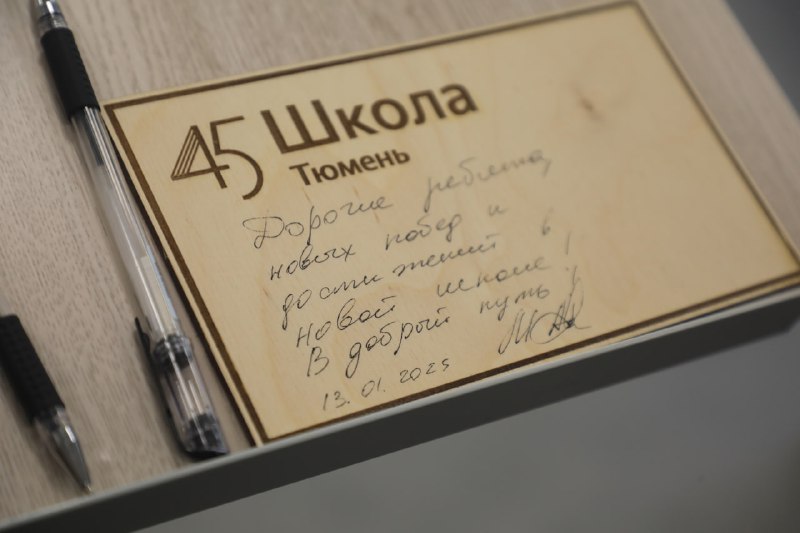 45 Школа
Тюмень
Дорогие ребята,
новых побед и
достижений в
новой школе!
В добрый путь!
13.01.2025